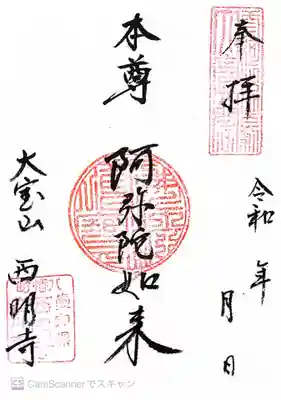 奉拝
令和 年 月 日
本尊
阿弥陀如来
大宝山 西明寺
CS CamScannerでスキャン